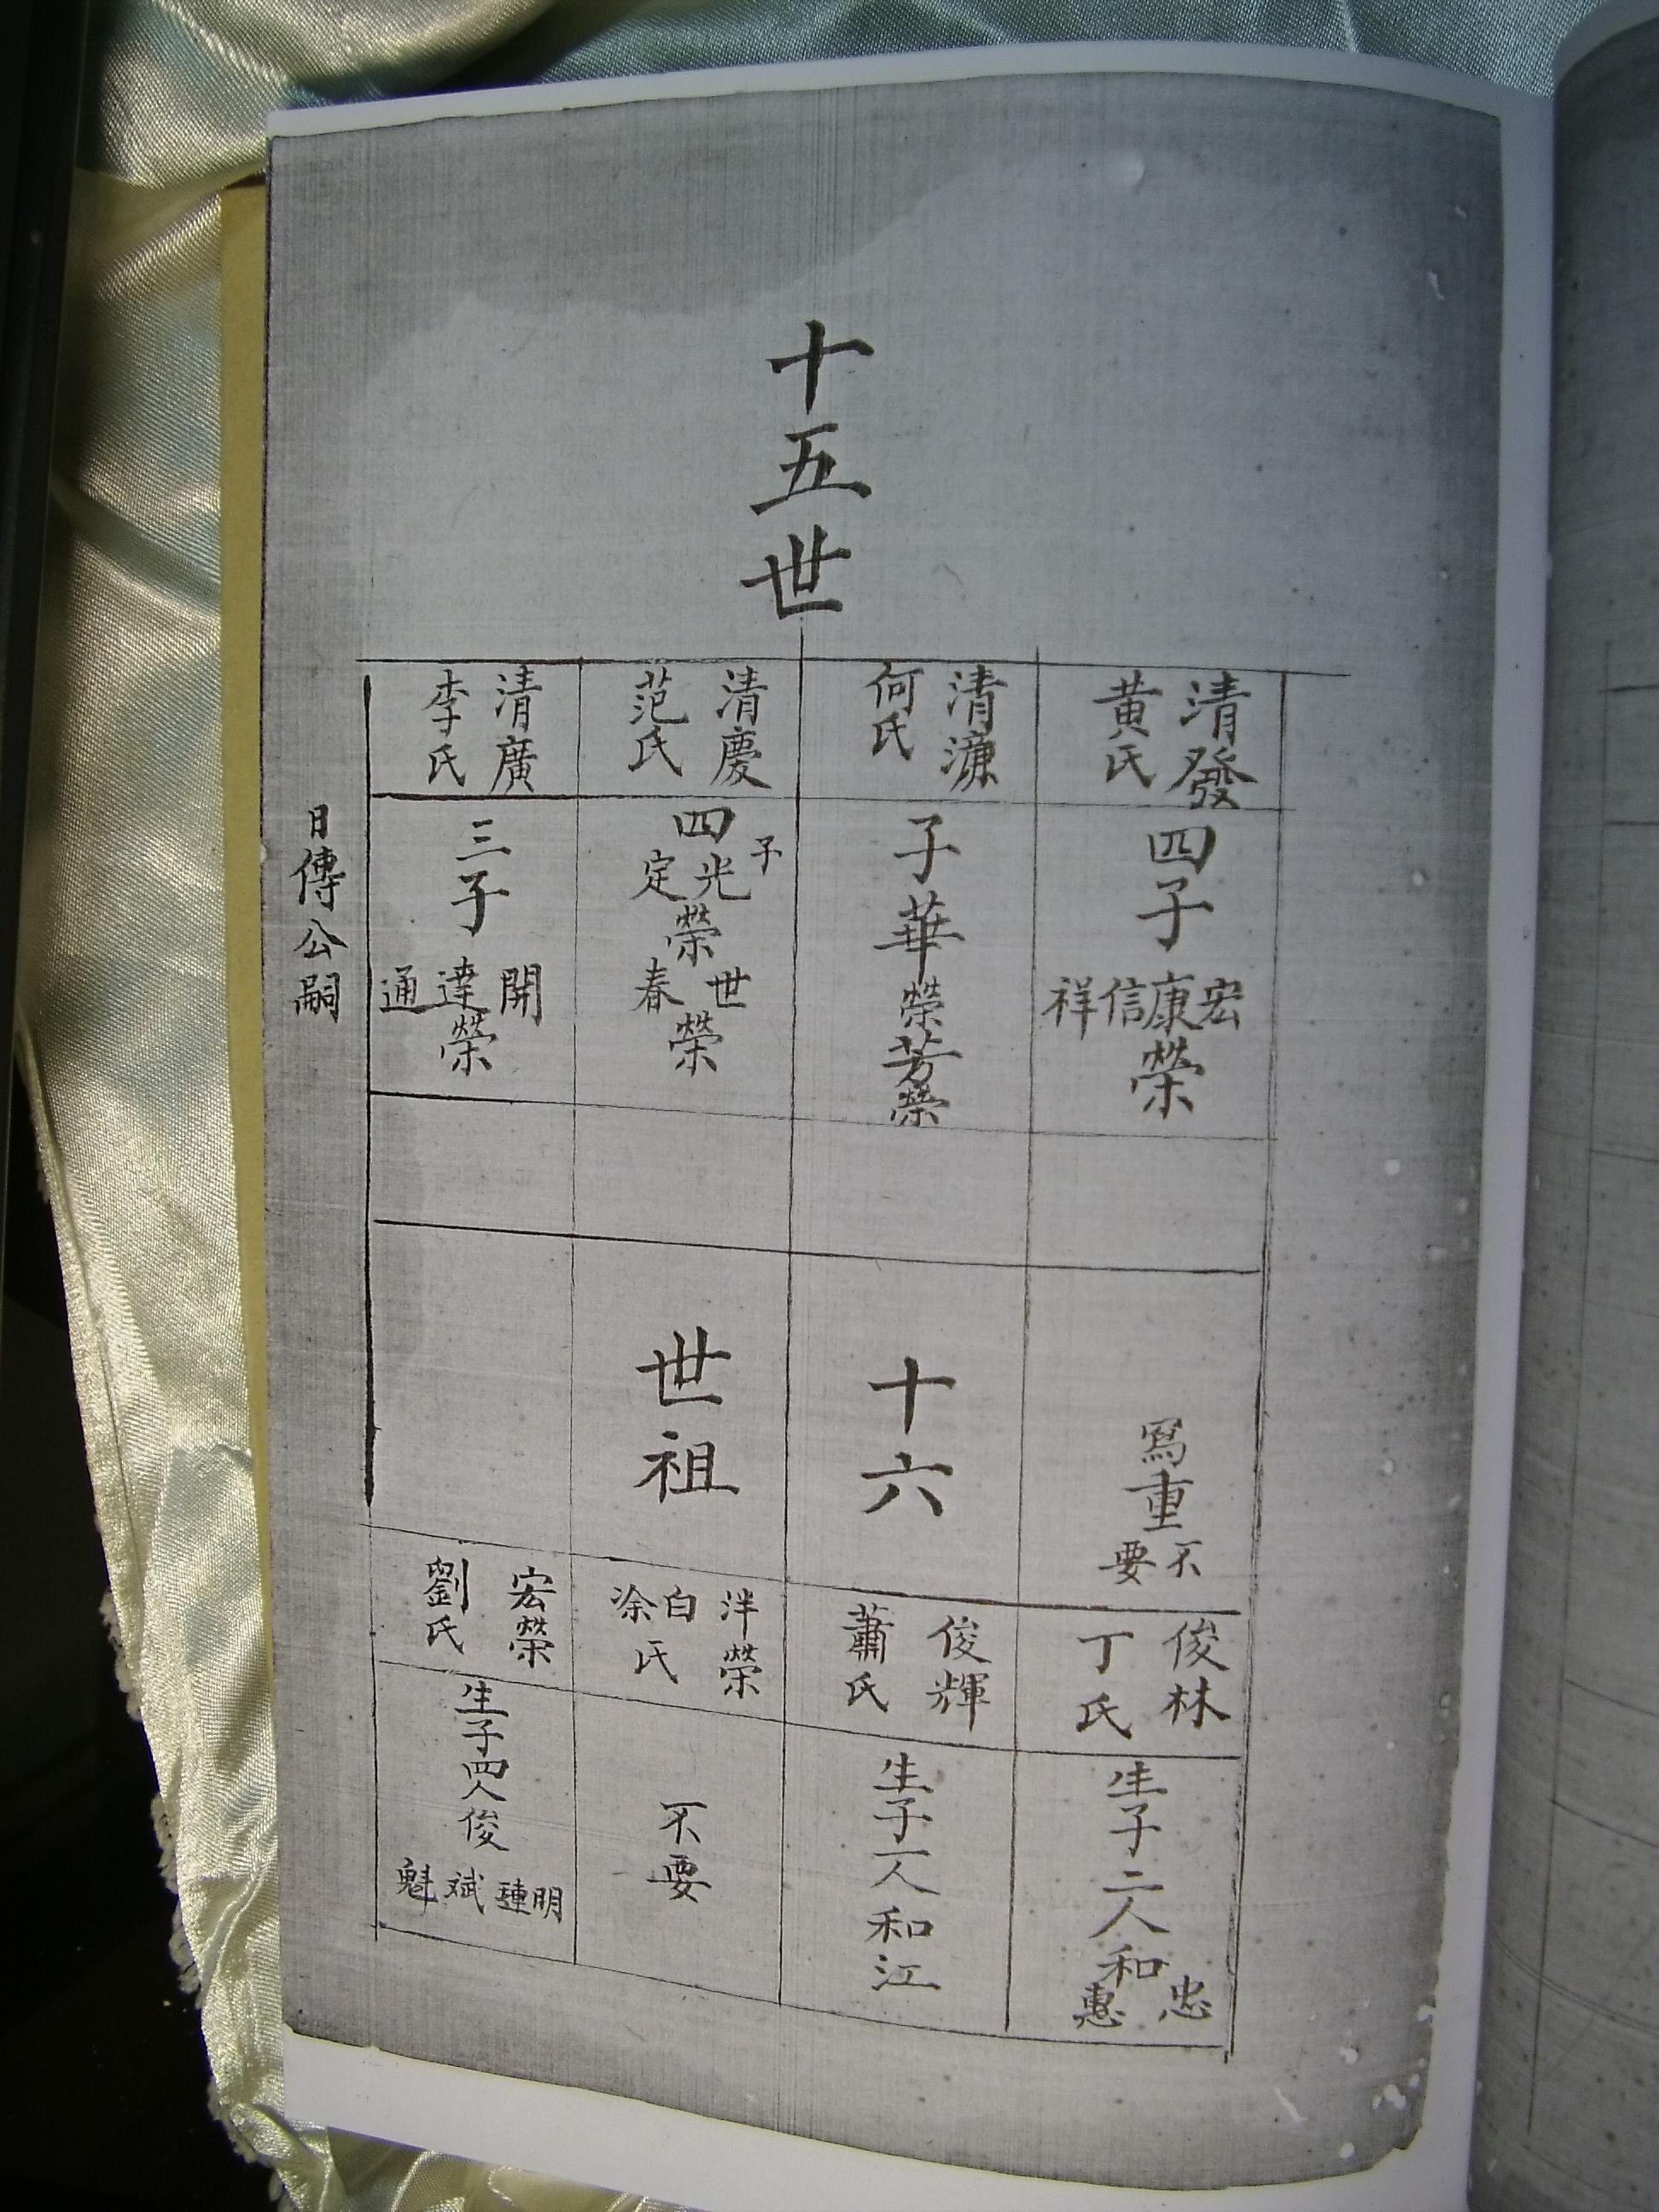 十五世
清發
黃氏
四子
宏康信祥
榮
清濂
何氏
子華榮芳榮
清慶
范氏
四子
光定
榮
世春
榮
清廣
李氏
三子
開達通
榮
日傳公嗣
寫重不要
十六
世祖
俊林
丁氏
生子二人和
忠惠
俊輝
蕭氏
生子一人和江
泮榮
白涂氏
不要
宏榮
劉氏
生子四人俊
明璉斌魁